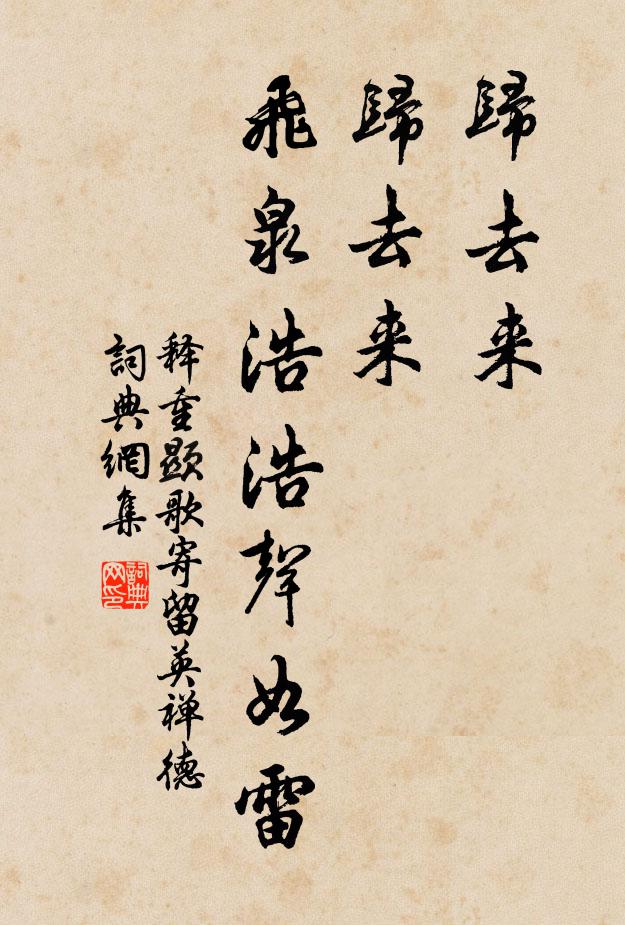 歸去来
歸去来
飛泉浩浩聲如雷
释重顯歌寄留英禅德
詞典網集
詞典網印